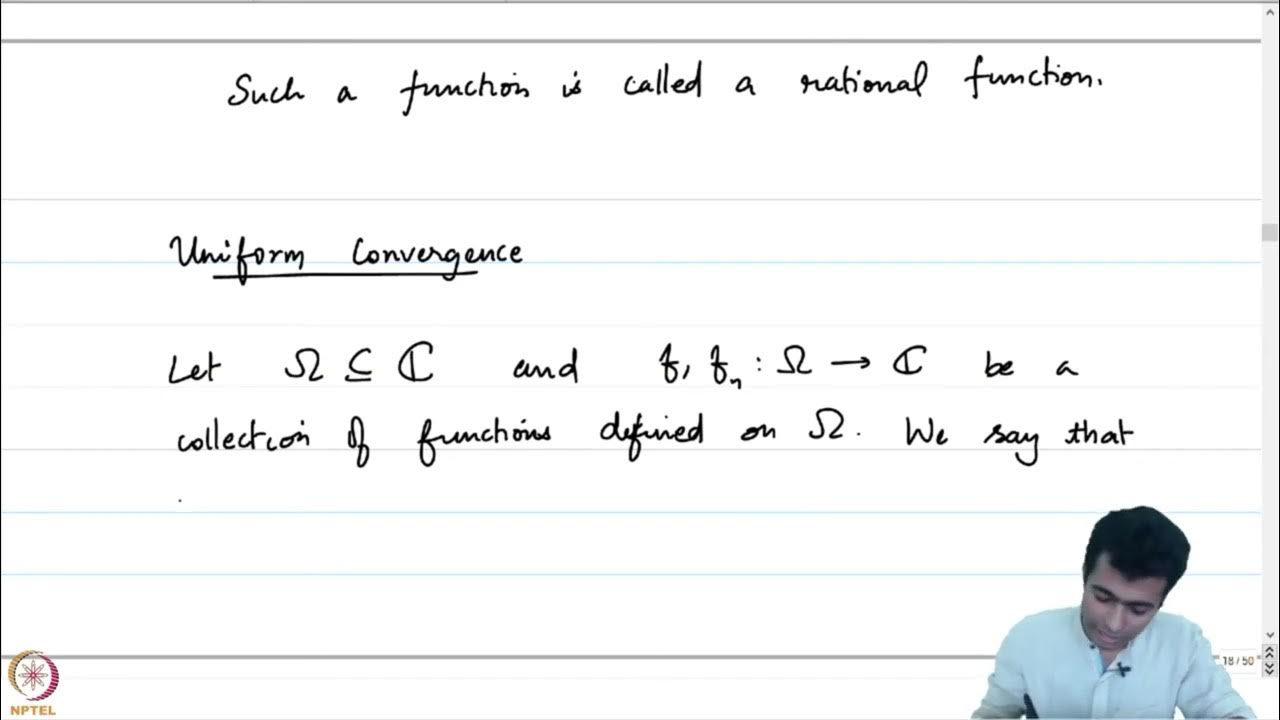 Such a function is called a rational function.
Uniform Convergence
Let Ω ⊆ ℂ and f, fₙ : Ω → ℂ be a
collection of functions defined on Ω. We say that
18 / 50
NPTEL